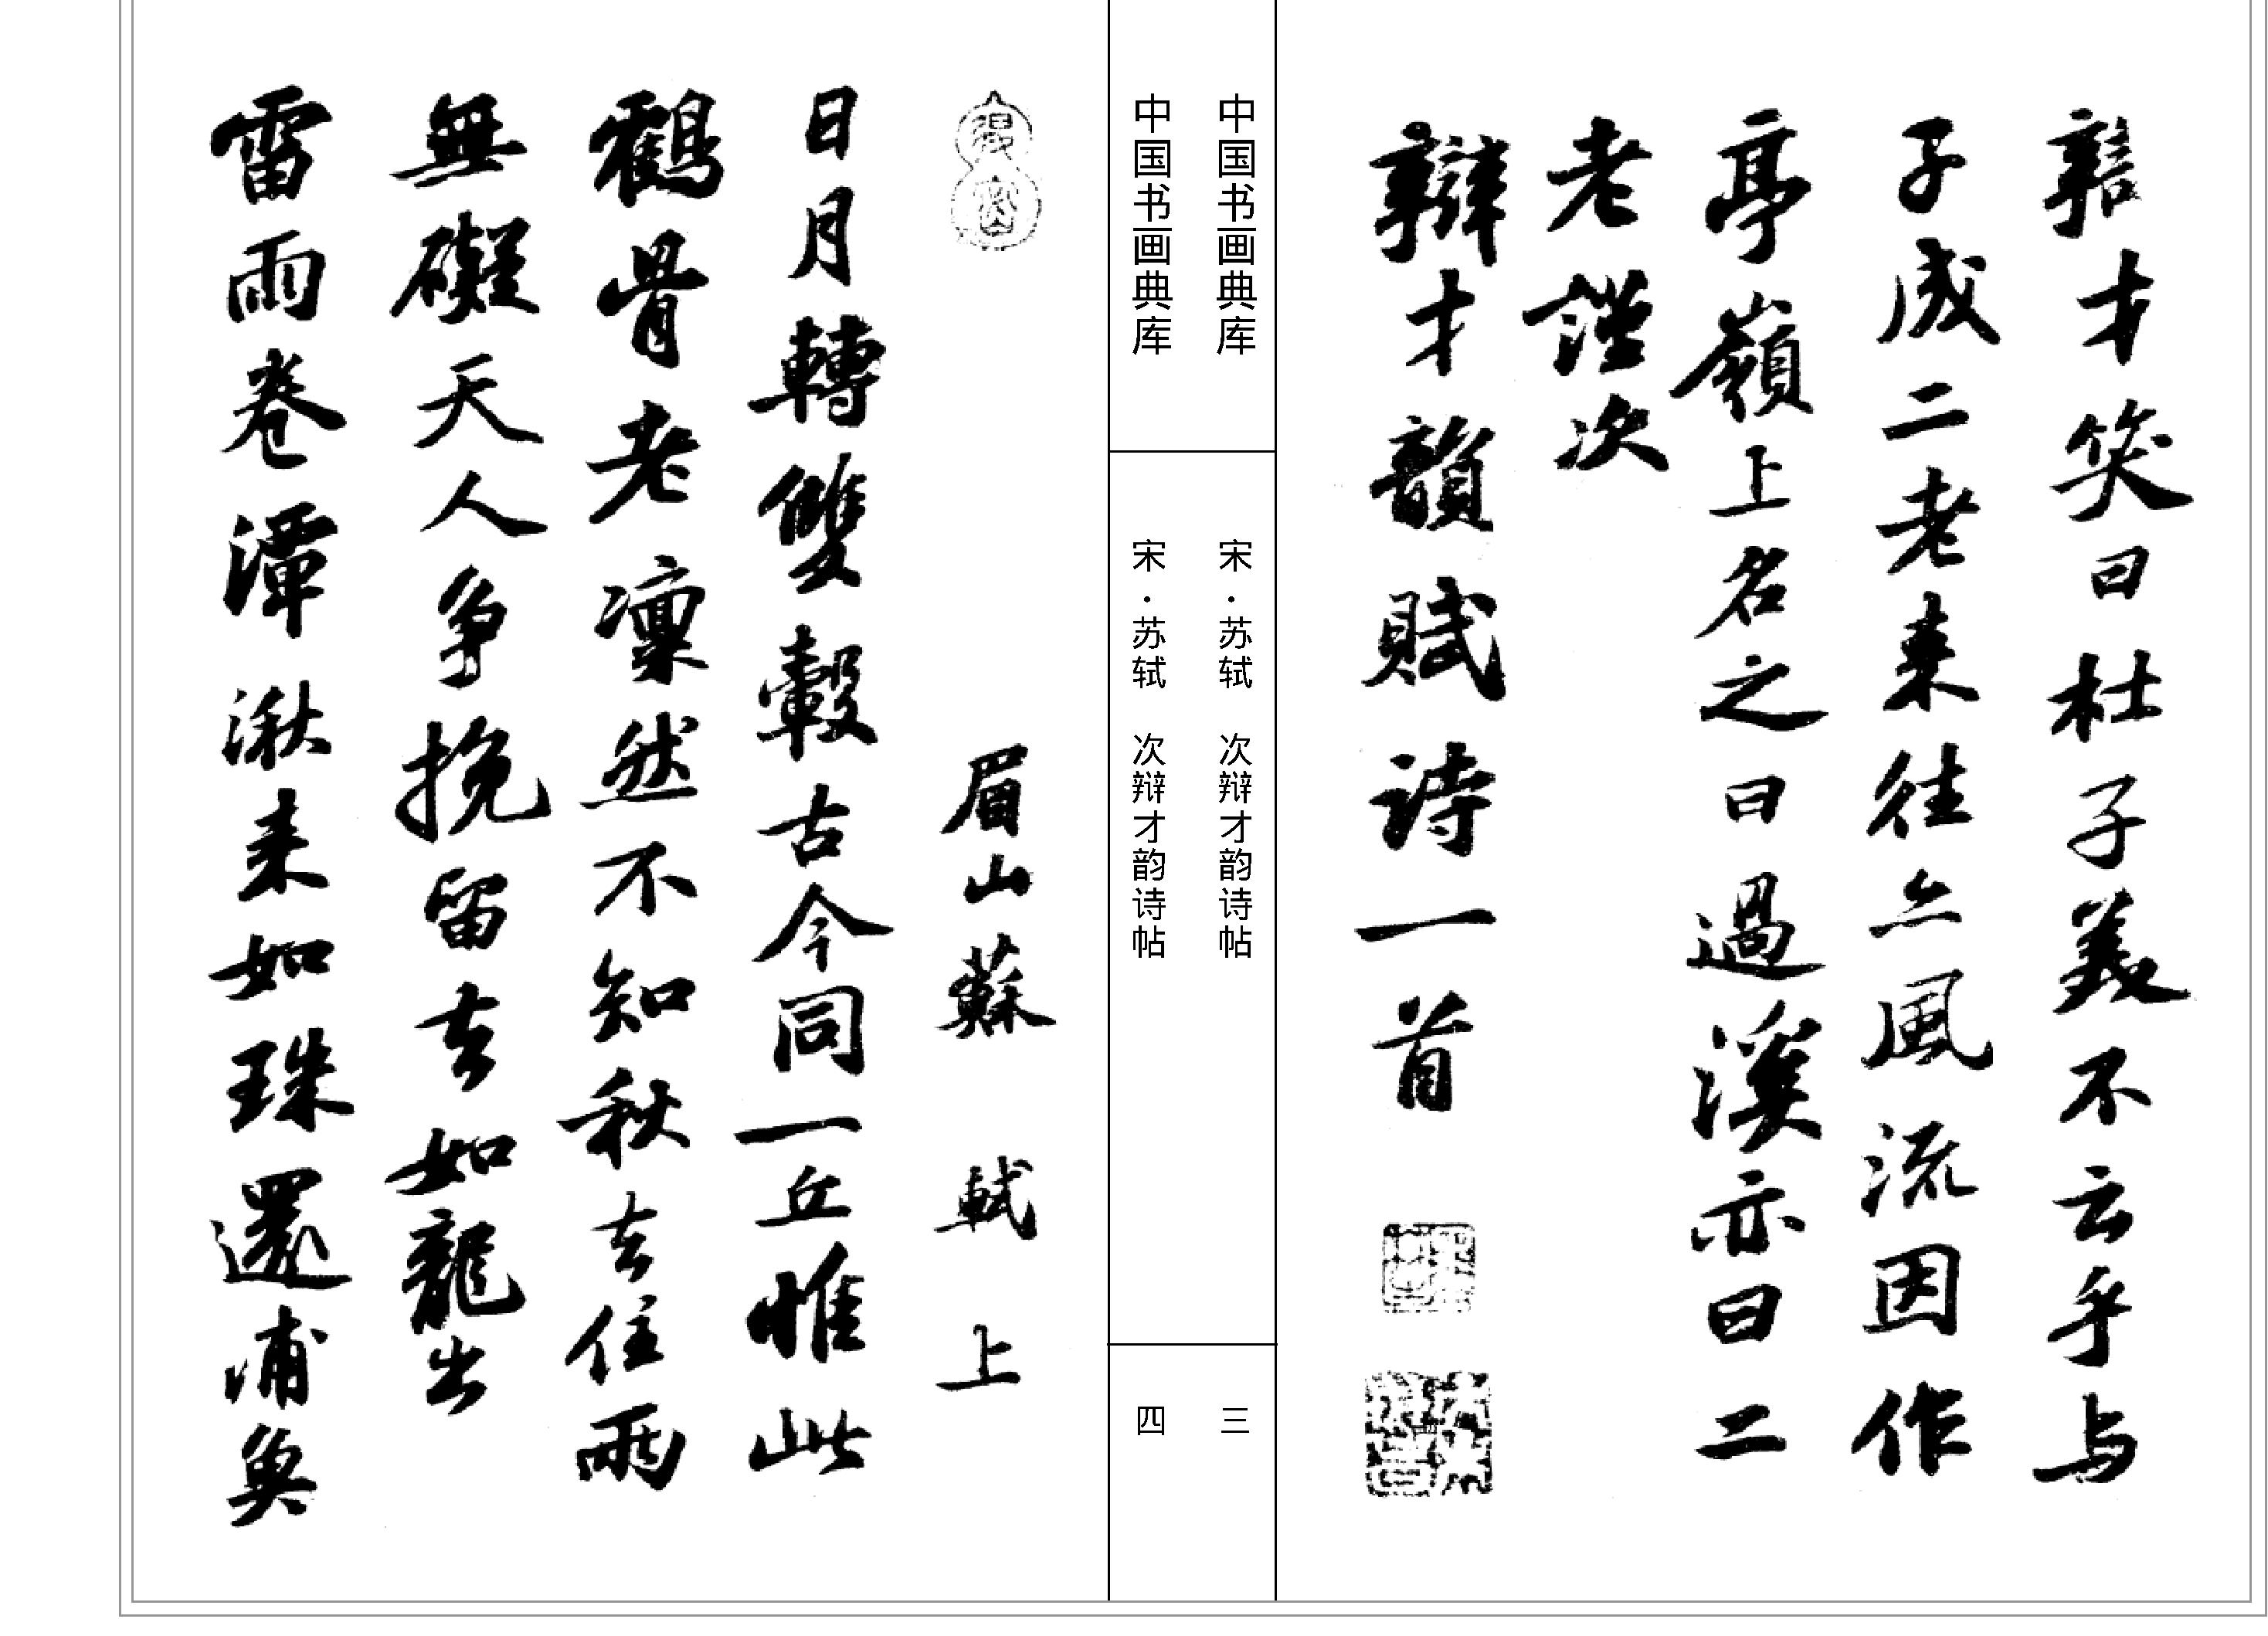 辯才笑曰杜子美不云乎与
子成二老来往亦風流因作
亭嶺上名之曰過溪亦曰二
老謹次
辯才韻賦诗一首
中国书画典库
宋·苏轼 次辩才韵诗帖
三
中国书画典库
宋·苏轼 次辩才韵诗帖
四
眉山蘇軾上
日月轉雙轂古今同一丘惟此
鶴骨老凜然不知秋去住兩
無礙天人争挽留去如龍出
雷雨卷潭湫来如珠還浦魚